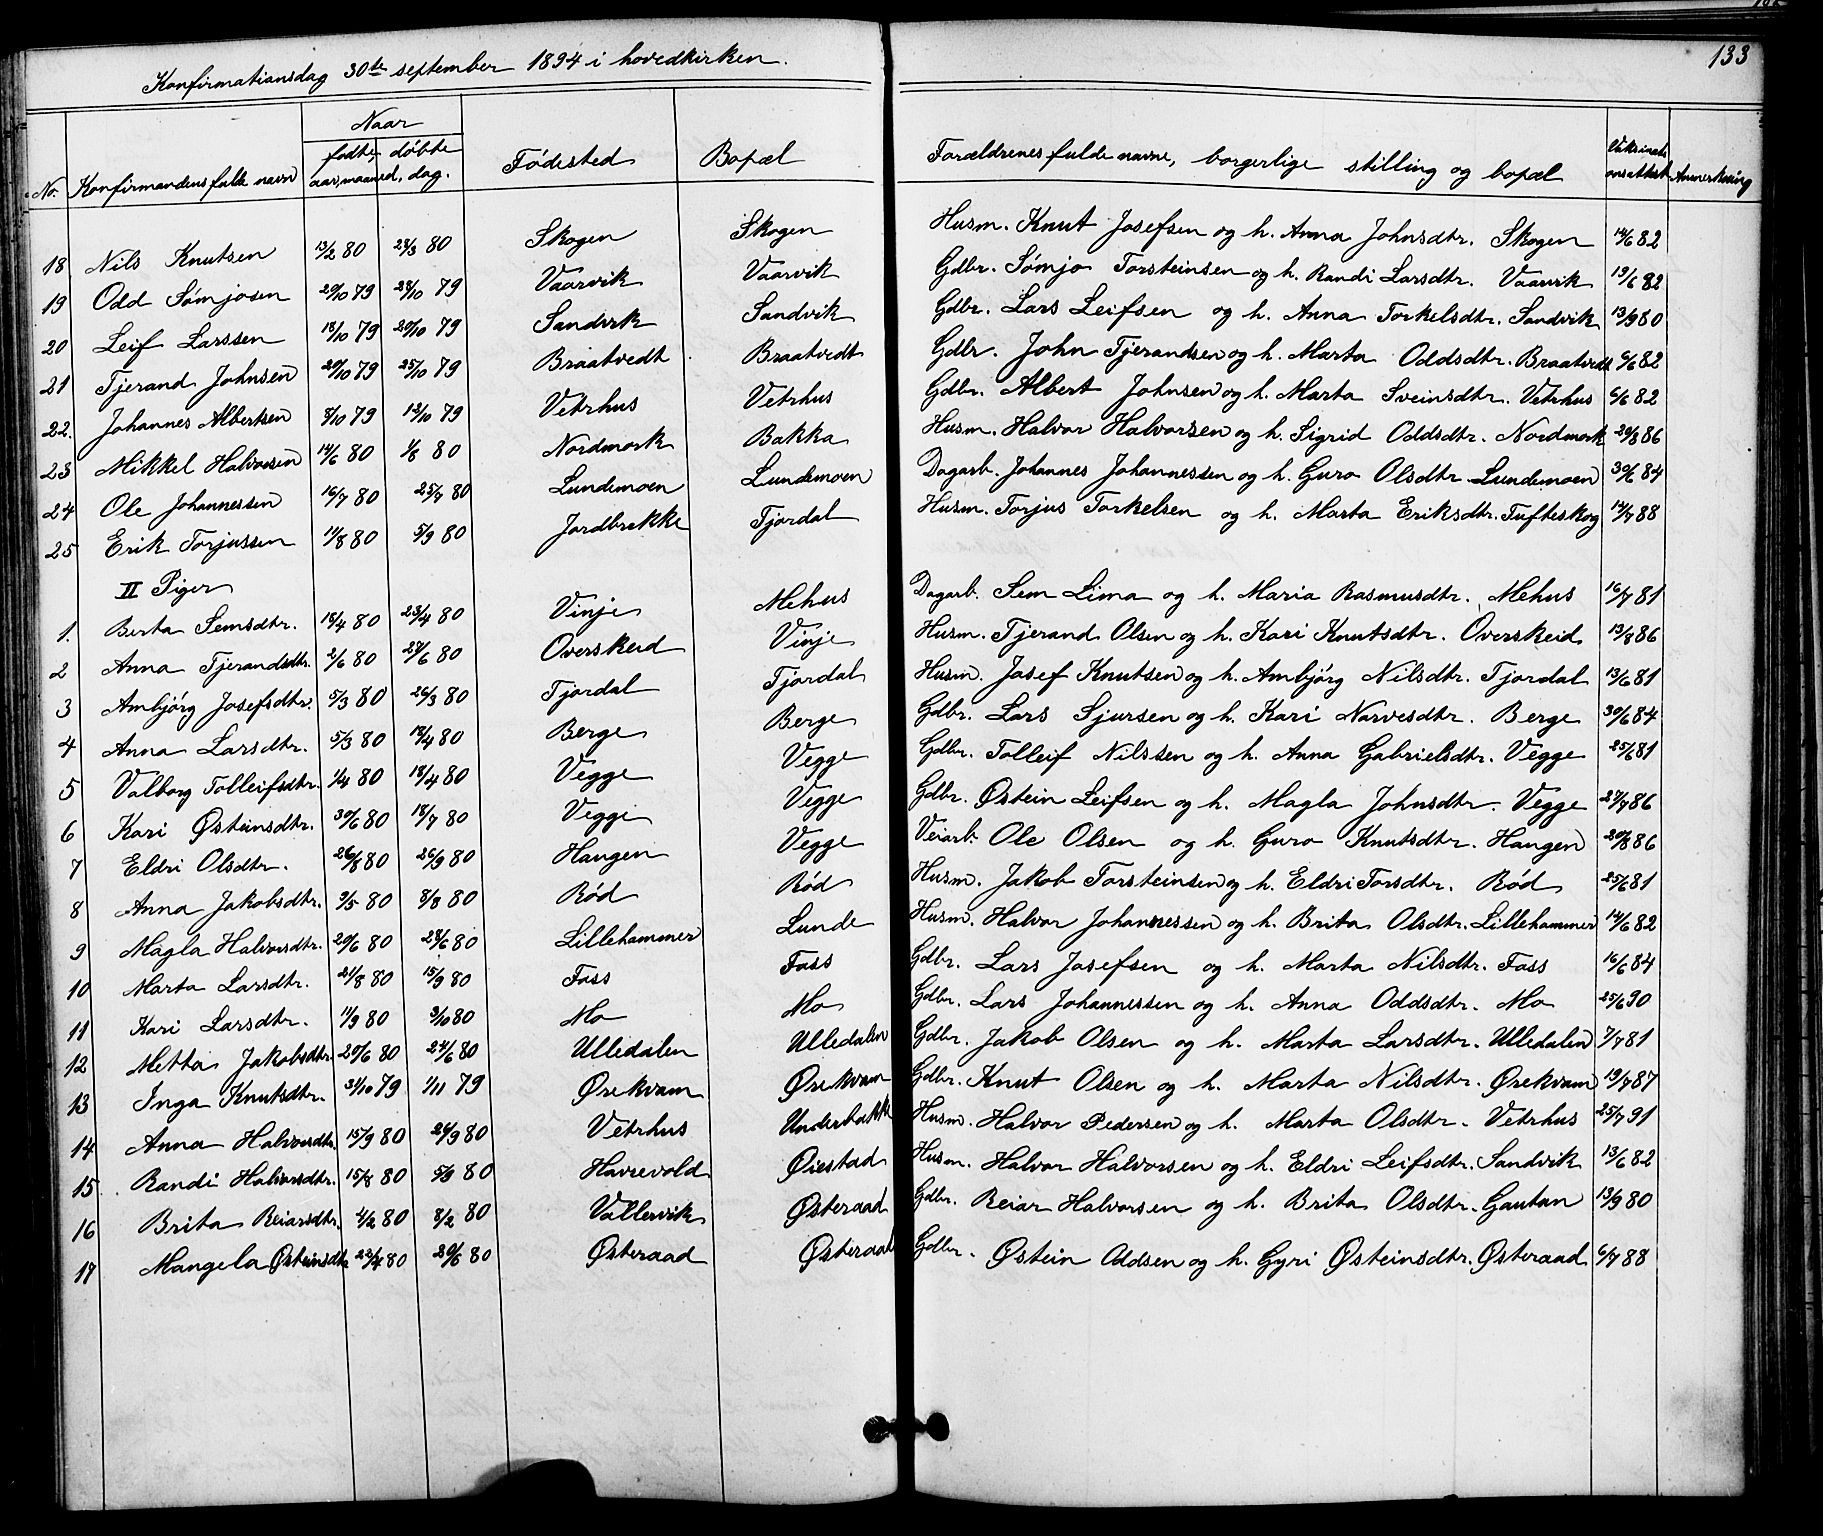 133
Konfirmationsdag 30te september 1894 i hovedkirken.
No. Konfirmandens fulde navn Naar fødte, døbte aar, maaned, dag. Fødested Bopæl Forældrenes fulde navne, borgerlige stilling og bopæl Anmerkning
18 Nils Knutsen 13/2 80 28/3 80 Skogen Skogen Husm. Knut Josefsen og h. Anna Johnsdtr. Skogen 14/6 82
19 Odd Sømjosen 20/10 79 28/10 79 Vaarvik Vaarvik Gdbr. Sømjo Torsteinsen og h. Randi Larsdtr. Vaarvik 19/6 82
20 Leif Larssen 18/10 79 20/10 79 Sandvik Sandvik Gdbr. Lars Leifsen og h. Anna Torkelsdtr. Sandvik 13/9 80
21 Tjerand Johnsen 20/10 79 25/10 79 Braatvedt Braatvedt Gdbr. John Tjerandsen og h. Marta Oddsdtr. Braatvedt 6/6 82
22. Johannes Albertsen 8/10 79 12/10 79 Vetrhus Vetrhus Gdbr. Albert Johnsen og h. Marta Sveinsdtr. Vetrhus 6/6 82
23 Mikkel Halvorsen 14/6 80 1/8 80 Nordmork Bakka Husm. Halvor Halvorsen og h. Sigrid Oddsdtr. Nordmork 20/8 86
24 Ole Johannessen 16/7 80 25/7 80 Lundemoen Lundemoen Dagarb. Johannes Johannessen og h. Guro Olsdtr. Lundemoen 30/6 84
25 Erik Torjussen 11/8 80 5/9 80 Jordbrekke Tjordal Husm. Torjus Torkelsen og h. Marta Eriksdtr. Tufteskog 14/7 88
II Piger
1. Berta Semsdtr. 18/4 80 23/4 80 Vinje Mehus Dagarb. Sem Lima og h. Maria Rasmusdtr. Mehus 16/7 81
2 Anna Tjerandsdtr. 2/6 80 27/6 80 Overskeid Vinje Husm. Tjerand Olsen og h. Kari Knutsdtr. Overskeid 13/8 86
3 Ambjörg Josefsdtr. 5/3 80 26/3 80 Tjordal Tjordal Husm. Josef Knutsen og h. Ambjörg Nilsdtr. Tjordal 13/6 81
4 Anna Larsdtr. 5/3 80 18/4 80 Berge Berge Gdbr. Lars Sjursen og h. Kari Narvesdtr. Berge 30/6 84
5 Valborg Tolleifsdtr. 1/4 80 18/4 80 Vegge Vegge Gdbr. Tolleif Nilssen og h. Anna Gabrielsdtr. Vegge 25/6 81
6 Kari Østeinsdtr. 30/6 80 18/7 80 Vegge Vegge Gdbr. Østein Leifsen og h. Magla Johnsdtr. Vegge 27/7 86
7 Eldri Olsdtr. 26/8 80 26/9 80 Haugen Vegge Veiarb. Ole Olsen og h. Guro Knutsdtr. Haugen 20/8 86
8 Anna Jakobsdtr. 9/5 80 8/8 80 Rød Rød Husm. Jakob Torsteinsen og h. Eldri Torsdtr. Rød 25/6 81
9 Magla Halvorsdtr. 20/6 80 28/6 80 Lillehammer Lunde Husm. Halvor Johannessen og h. Brita Olsdtr. Lillehammer 14/6 82
10 Marta Larsdtr. 21/8 80 15/9 80 Foss Foss Gdbr. Lars Josefsen og h. Marta Nilsdtr. Foss 16/6 84
11 Kari Larsdtr. 11/9 80 3/10 80 Mo Mo Gdbr. Lars Johannessen og h. Anna Oddsdtr. Mo 25/6 90
12 Metta Jakobsdtr. 20/6 80 24/6 80 Ulledalen Ulledalen Gdbr. Jakob Olsen og h. Marta Larsdtr. Ulledalen 7/7 81
13 Inga Knutsdtr. 31/10 79 1/11 79 Ørekvam Ørekvam Gdbr. Knut Olsen og h. Marta Nilsdtr. Ørekvam 19/7 87
14 Anna Halvorsdtr. 15/9 80 26/9 80 Vetrhus Underbakk Husm. Halvor Pedersen og h. Marta Olsdtr. Vetrhus 25/7 91
15 Randi Halvorsdtr. 15/8 80 5/9 80 Havrevold Øiestad Husm. Halvor Halvorsen og h. Eldri Leifsdtr. Sandvik 13/6 82
16 Brita Reiarsdtr. 4/2 80 8/2 80 Vallervik Østeraad Gdbr. Reiar Halvorsen og h. Brita Olsdtr. Gautun 13/9 80
17 Mangela Østeinsdtr. 22/4 80 20/6 80 Østeraad Østeraad Gdbr. Østein Oddsen og h. Gyri Østeinsdtr. Østeraad 6/7 88